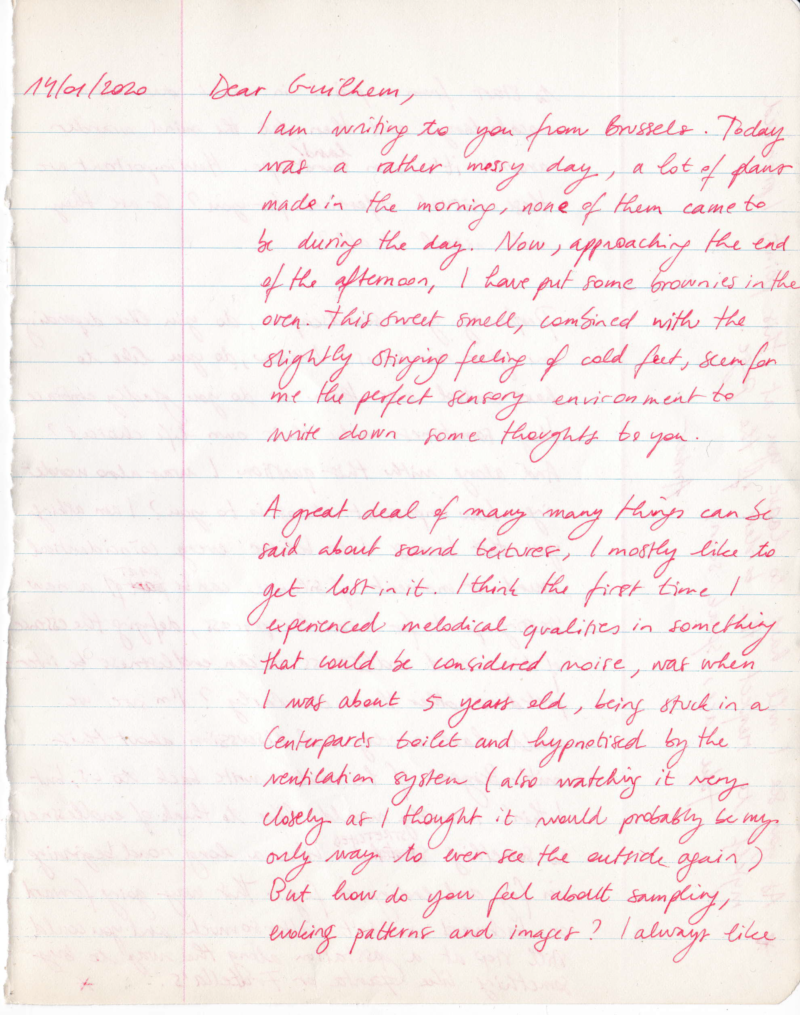 14/01/2020 Dear Guilhem,
I am writing to you from Brussels. Today
was a rather messy day, a lot of plans
made in the morning, none of them came to
be during the day. Now, approaching the end
of the afternoon, I have put some brownies in the
oven. This sweet smell, combined with the
slightly stinging feeling of cold feet, seem for
me the perfect sensory environment to
write down some thoughts to you.
A great deal of many many things can be
said about sound textures, I mostly like to
get lost in it. I think the first time I
experienced melodical qualities in something
that could be considered noise, was when
I was about 5 years old, being stuck in a
Centerparcs toilet and hypnotised by the
ventilation system (also watching it very
closely as I thought it would probably be my
only way to ever see the outside again)
But how do you feel about sampling,
evoking patterns and images? I always like